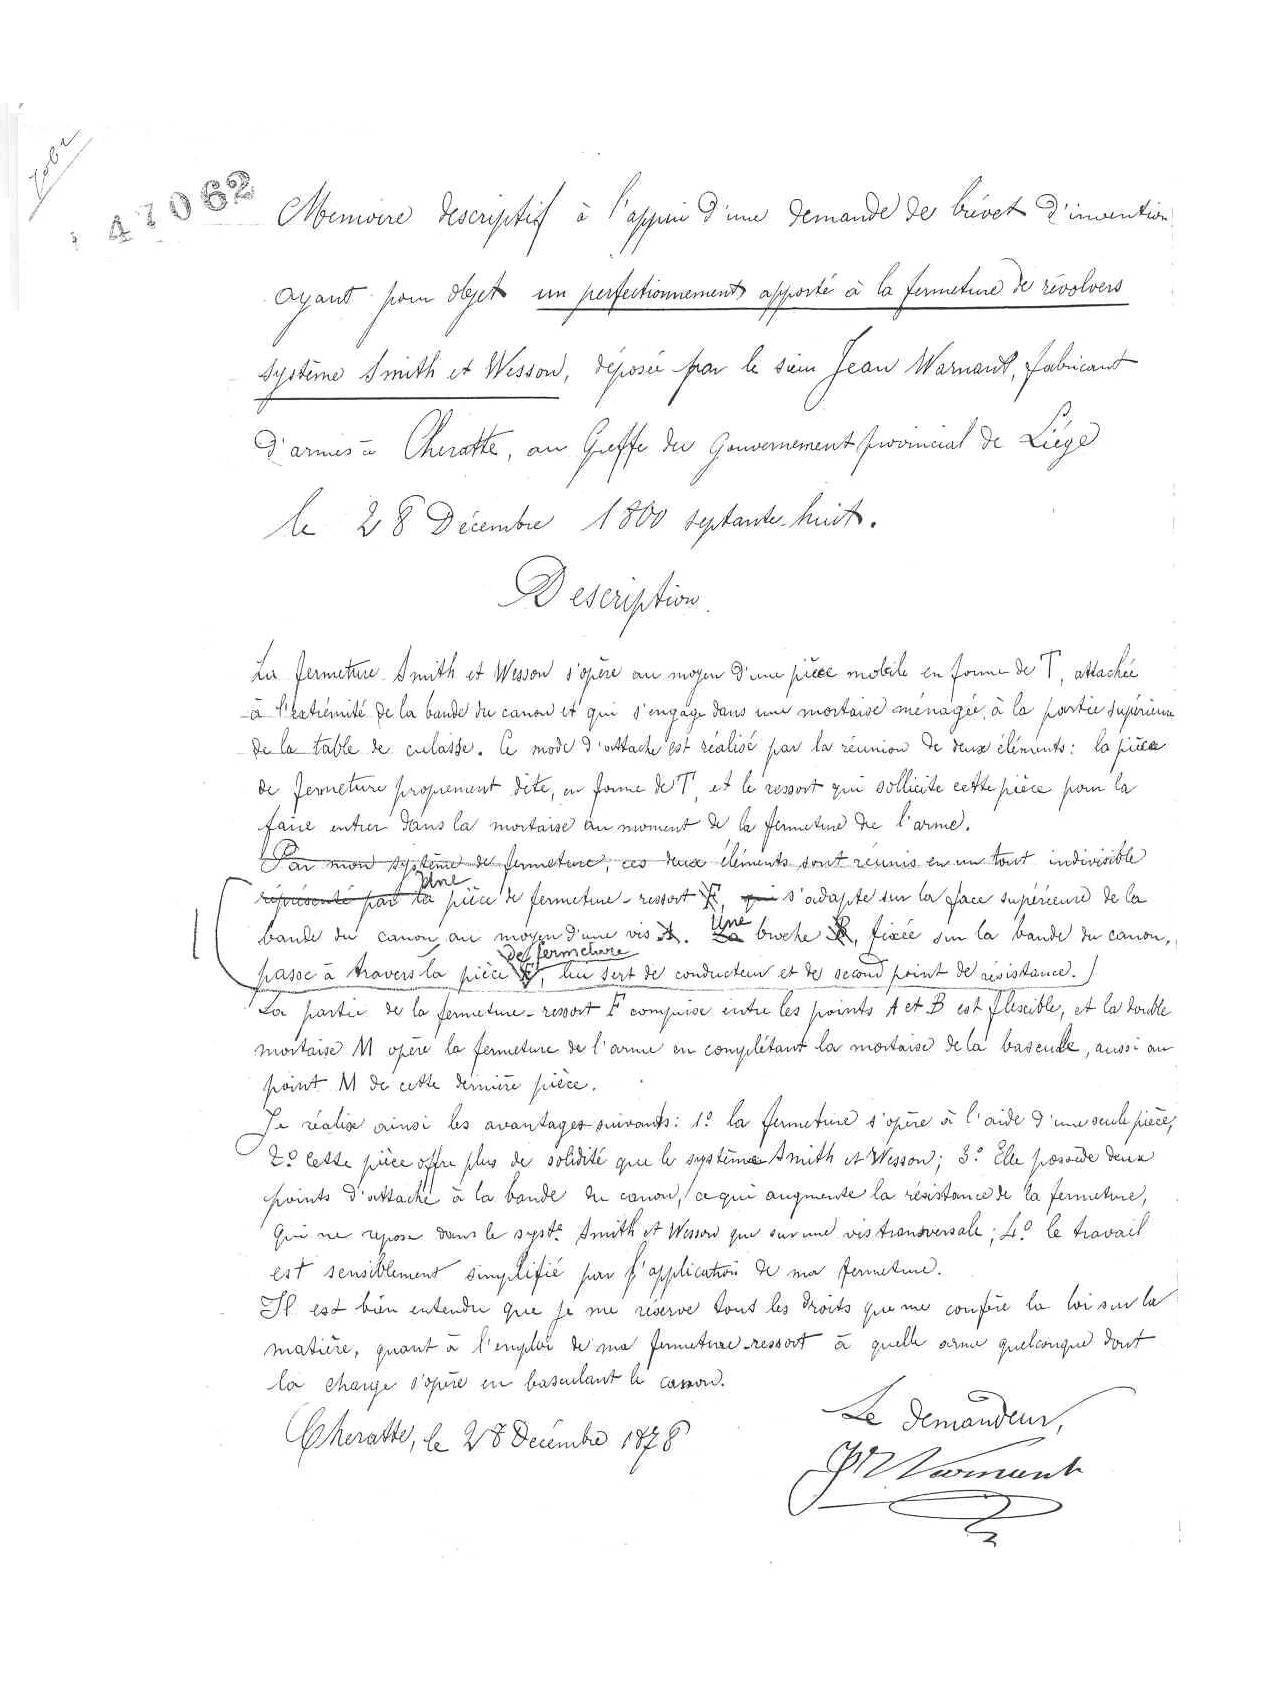 47062
Memoire descriptif à l'appui d'une demande de brévet d'invention
ayant pour objet un perfectionnement apporté à la fermeture de révolvers
système Smith et Wesson, déposée par le sieur Jean Warnant, fabricant
d'armes à Cheratte, au Greffe du Gouvernement provincial de Liége
le 28 Décembre 1800 septante-huit.
Description.
La fermeture Smith et Wesson s'opère au moyen d'une pièce mobile en forme de T, attachée
à l'extrémité de la bande du canon et qui s'engage dans une mortaise ménagée, à la partie supérieure
de la table de culasse. Ce mode d'attache est réalisé par la réunion de deux éléments: la pièce
de fermeture proprement dite, en forme de T, et le ressort qui sollicite cette pièce pour la
faire entrer dans la mortaise au moment de la fermeture de l'arme.
Par mon système de fermeture, ces deux éléments sont réunis en un tout indivisible
Une
réprésenté par la pièce de fermeture-ressort F, qui s'adapte sur la face supérieure de la
Une
bande du canon au moyen d'une vis A. La broche B, fixée sur la bande du canon,
de fermeture
passe à travers la pièce F, lui sert de conducteur et de second point de résistance.
La partie de la fermeture-ressort F comprise entre les points A et B est flexible, et la double
mortaise M opère la fermeture de l'arme en complétant la mortaise de la bascule, aussi au
point M de cette dernière pièce.
Je réalise ainsi les avantages suivants: 1º la fermeture s'opère à l'aide d'une seule pièce,
2º cette pièce offre plus de solidité que le système Smith et Wesson; 3º Elle possède deux
points d'attache à la bande du canon, ce qui augmente la résistance de la fermeture,
qui ne repose dans le syste. Smith et Wesson que sur une vis transversale; 4º le travail
est sensiblement simplifié par l'application de ma fermeture.
Il est bien entendu que je me réserve tous les droits que me confère la loi sur la
matière, quant à l'emploi de ma fermeture-ressort à quelle arme quelconque dont
la charge s'opère en basculant le canon.
Cheratte, le 28 Décembre 1878
Le demandeur,
Jn Warnant